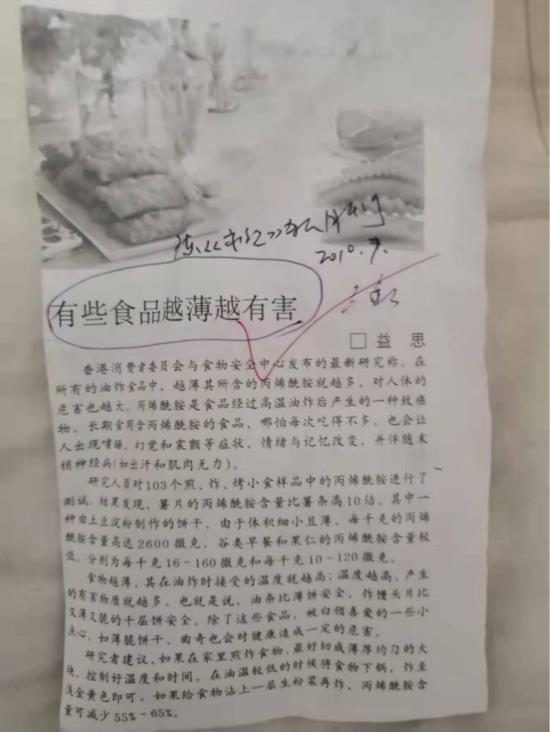 2010.7.
有些食品越薄越有害
□益 思
香港消费者委员会与食物安全中心发布的最新研究称，在
所有的油炸食品中，越薄其所含的丙烯酰胺就越多，对人体的
危害也越大。丙烯酰胺是食品经过高温油炸后产生的一种致癌
物。长期食用含丙烯酰胺的食品，哪怕每次吃得不多，也会让
人出现嗜睡、幻觉和震颤等症状，情绪与记忆改变，并伴随末
梢神经病(如出汗和肌肉无力)。
研究人员对103个煎、炸、烤小食样品中的丙烯酰胺进行了
测试，结果发现，薯片的丙烯酰胺含量比薯条高10倍。其中一
种由土豆淀粉制作的饼干，由于体积细小且薄，每千克的丙烯
酰胺含量高达2600微克，谷类早餐和果仁的丙烯酰胺含量较
低，分别为每千克16－160微克和每千克10－120微克。
食物越薄，其在油炸时接受的温度就越高；温度越高，产生
的有害物质就越多。也就是说，油条比薄饼安全，炸馒头片比
又薄又脆的千层饼安全。除了这些食品，被白领喜爱的一些小
点心，如薄脆饼干、曲奇也会对健康造成一定的危害。
研究者建议，如果在家里煎炸食物，最好切成薄厚均匀的大
块，控制好温度和时间。在油温较低的时候将食物下锅，炸至
浅金黄色即可。如果给食物沾上一层生粉浆再炸，丙烯酰胺含
量可减少55%－65%。